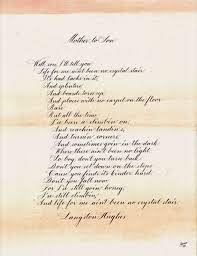 Mother to Son
Well, son, I'll tell you
Life for me ain't been no crystal stair
It's had tacks in it
And splinters
And boards torn up
And places with no carpet on the floor
Bare
But all the time
I'se been a climbin' on
And reachin' landin's
And turnin' corners
And sometimes goin' in the dark
Where there ain't been no light
So boy, don't you turn back
Don't you set down on the steps
'Cause you finds its kinder hard
Don't you fall now
For I'se still goin', honey
I'se still climbin'
And life for me ain't been no crystal stair
Langston Hughes